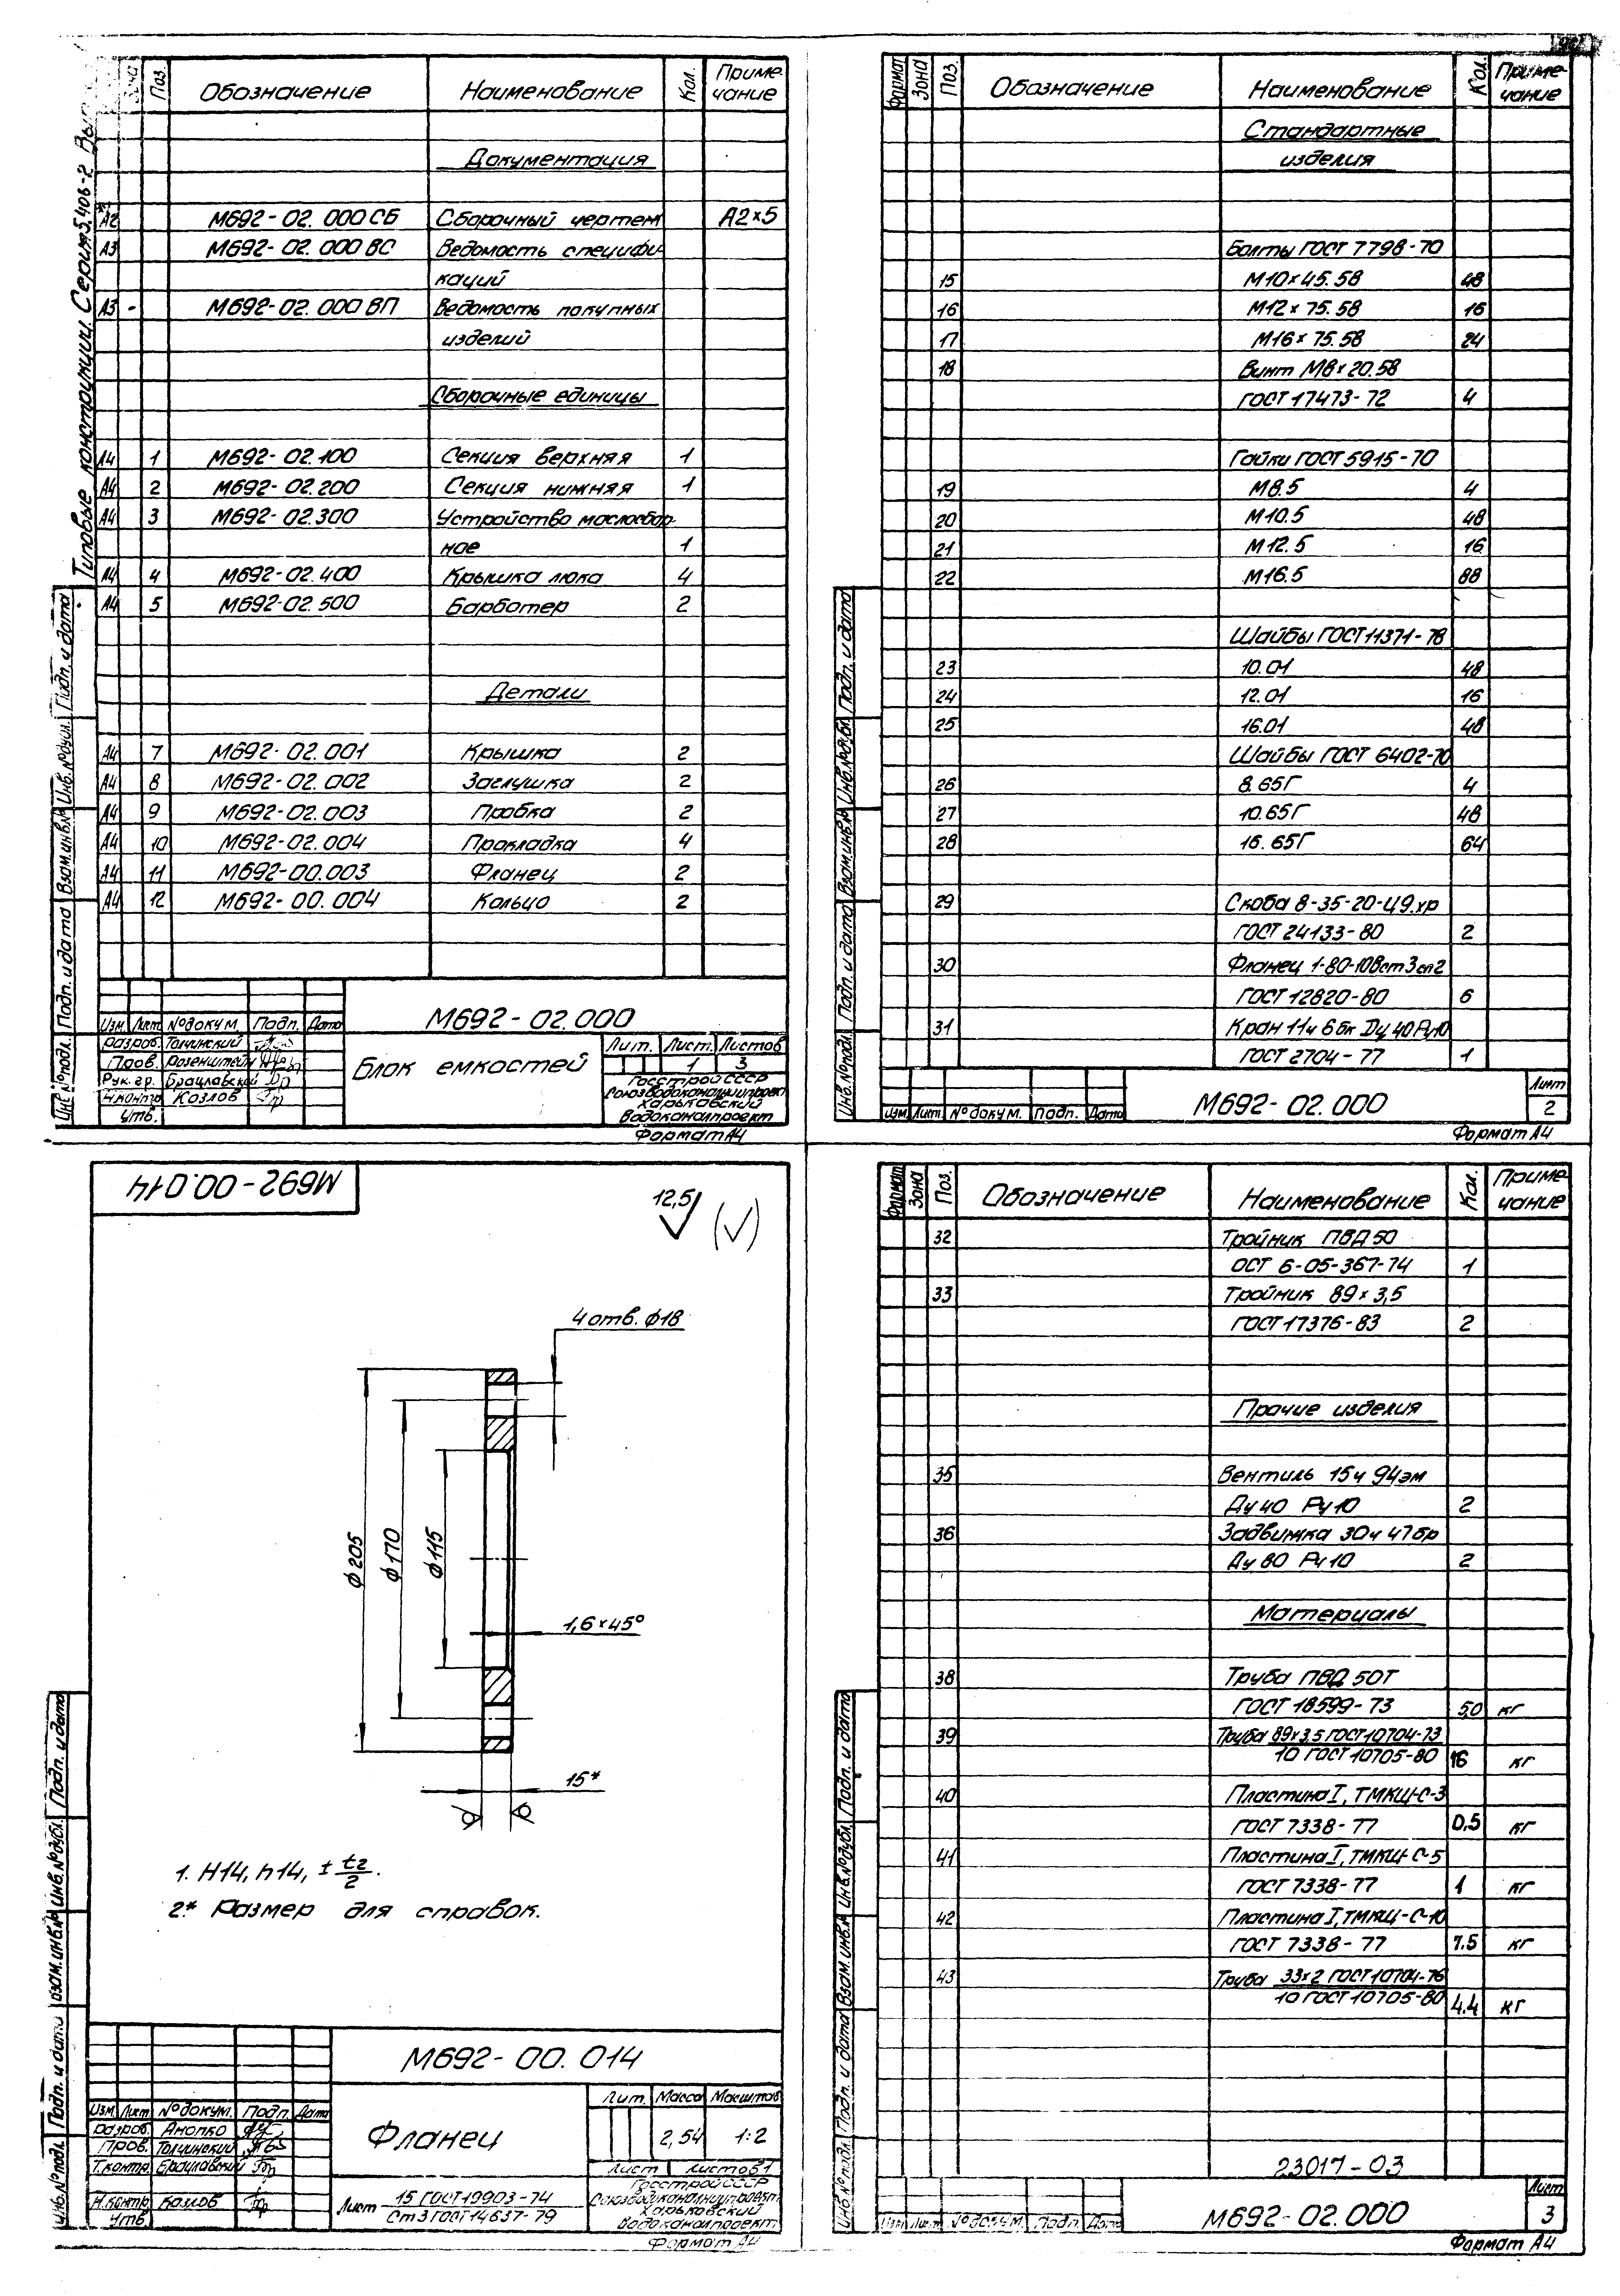 Типовые конструкции. Серия 5.408-2
Поз.
Обозначение
Наименование
Кол.
Приме-
чание
Документация
А2 М692-02.000 СБ Сборочный чертеж А2×5
А3 М692-02.000 ВС Ведомость специфи-
каций
А3 - М692-02.000 ВП Ведомость покупных
изделий
Сборочные единицы
А4 1 М692-02.100 Секция верхняя 1
А4 2 М692-02.200 Секция нижняя 1
А4 3 М692-02.300 Устройство маслосбор-
ное 1
А4 4 М692-02.400 Крышка люка 4
А4 5 М692-02.500 Барботер 2
Детали
А4 7 М692-02.001 Крышка 2
А4 8 М692-02.002 Заглушка 2
А4 9 М692-02.003 Пробка 2
А4 10 М692-02.004 Прокладка 4
А4 11 М692-00.003 Фланец 2
А4 12 М692-00.004 Кольцо 2
Инв.№подл. Подп. и дата Взам.инв.№ Инв.№дубл. Подп. и дата
М692-02.000
Изм. Лист №докум. Подп. Дата
Разраб. Толчинский
Пров. Розенштейн
Рук.гр. Брацлавский
Н.контр Козлов
Утв.
Блок емкостей
Лит. Лист Листов
1 3
Госстрой СССР
Союзводоканалниипроект
Харьковский
Водоканалпроект
Формат А4
Формат Зона Поз. Обозначение Наименование Кол. Приме-
чание
Стандартные
изделия
Болты ГОСТ 7798-70
15 М10×45.58 48
16 М12×75.58 16
17 М16×75.58 24
18 Винт М8×20.58
ГОСТ 17473-72 4
Гайки ГОСТ 5915-70
19 М8.5 4
20 М10.5 48
21 М12.5 16
22 М16.5 88
Шайбы ГОСТ 11371-78
23 10.01 48
24 12.01 16
25 16.01 48
Шайбы ГОСТ 6402-70
26 8.65Г 4
27 10.65Г 48
28 16.65Г 64
29 Скоба 8-35-20-Ц9.хр
ГОСТ 24133-80 2
30 Фланец 1-80-10Вст3сп2
ГОСТ 12820-80 6
31 Кран 11ч6бк Ду40Ру10
ГОСТ 2704-77 1
Инв.№подл. Подп. и дата Взам.инв.№ Инв.№дубл. Подп. и дата
Изм Лист №докум. Подп. Дата
М692-02.000
Лист
2
Формат А4
М692-00.014
12,5
4 отв. ϕ18
ϕ205
ϕ170
ϕ115
1,6×45°
15*
1. H14, h14, ± t2/2.
2.* Размер для справок.
Инв.№подл. Подп. и дата Взам.инв.№ Инв.№дубл. Подп. и дата
М692-00.014
Изм. Лист №докум. Подп. Дата
Разраб. Анопко
Пров. Толчинский
Т.контр. Брацлавский
Н.контр Козлов
Утв.
Фланец
Лит. Масса Масштаб
2,54 1:2
Лист Листов 1
Лист 15 ГОСТ 19903-74
Ст3 ГОСТ 14637-79
Госстрой СССР
Союзводоканалниипроект
Харьковский
Водоканалпроект
Формат А4
Формат Зона Поз. Обозначение Наименование Кол. Приме-
чание
32 Тройник ПВД 50
ОСТ 6-05-367-74 1
33 Тройник 89×3,5
ГОСТ 17376-83 2
Прочие изделия
35 Вентиль 15ч 94эм
Ду40 Ру10 2
36 Задвижка 30ч 47бр
Ду 80 Ру10 2
Материалы
38 Труба ПВД 50Т
ГОСТ 18599-73 5,0 кг
39 Труба 89×3.5 ГОСТ 10704-73
10 ГОСТ 10705-80 16 кг
40 Пластина I, ТМКЩ-С-3
ГОСТ 7338-77 0,5 кг
41 Пластина I, ТМКЩ-С-5
ГОСТ 7338-77 1 кг
42 Пластина I, ТМКЩ-С-10
ГОСТ 7338-77 7.5 кг
43 Труба 33×2 ГОСТ 10704-76
10 ГОСТ 10705-80 4.4 кг
23017-03
Инв.№подл. Подп. и дата Взам.инв.№ Инв.№дубл. Подп. и дата
Изм Лист №докум. Подп. Дата
М692-02.000
Лист
3
Формат А4